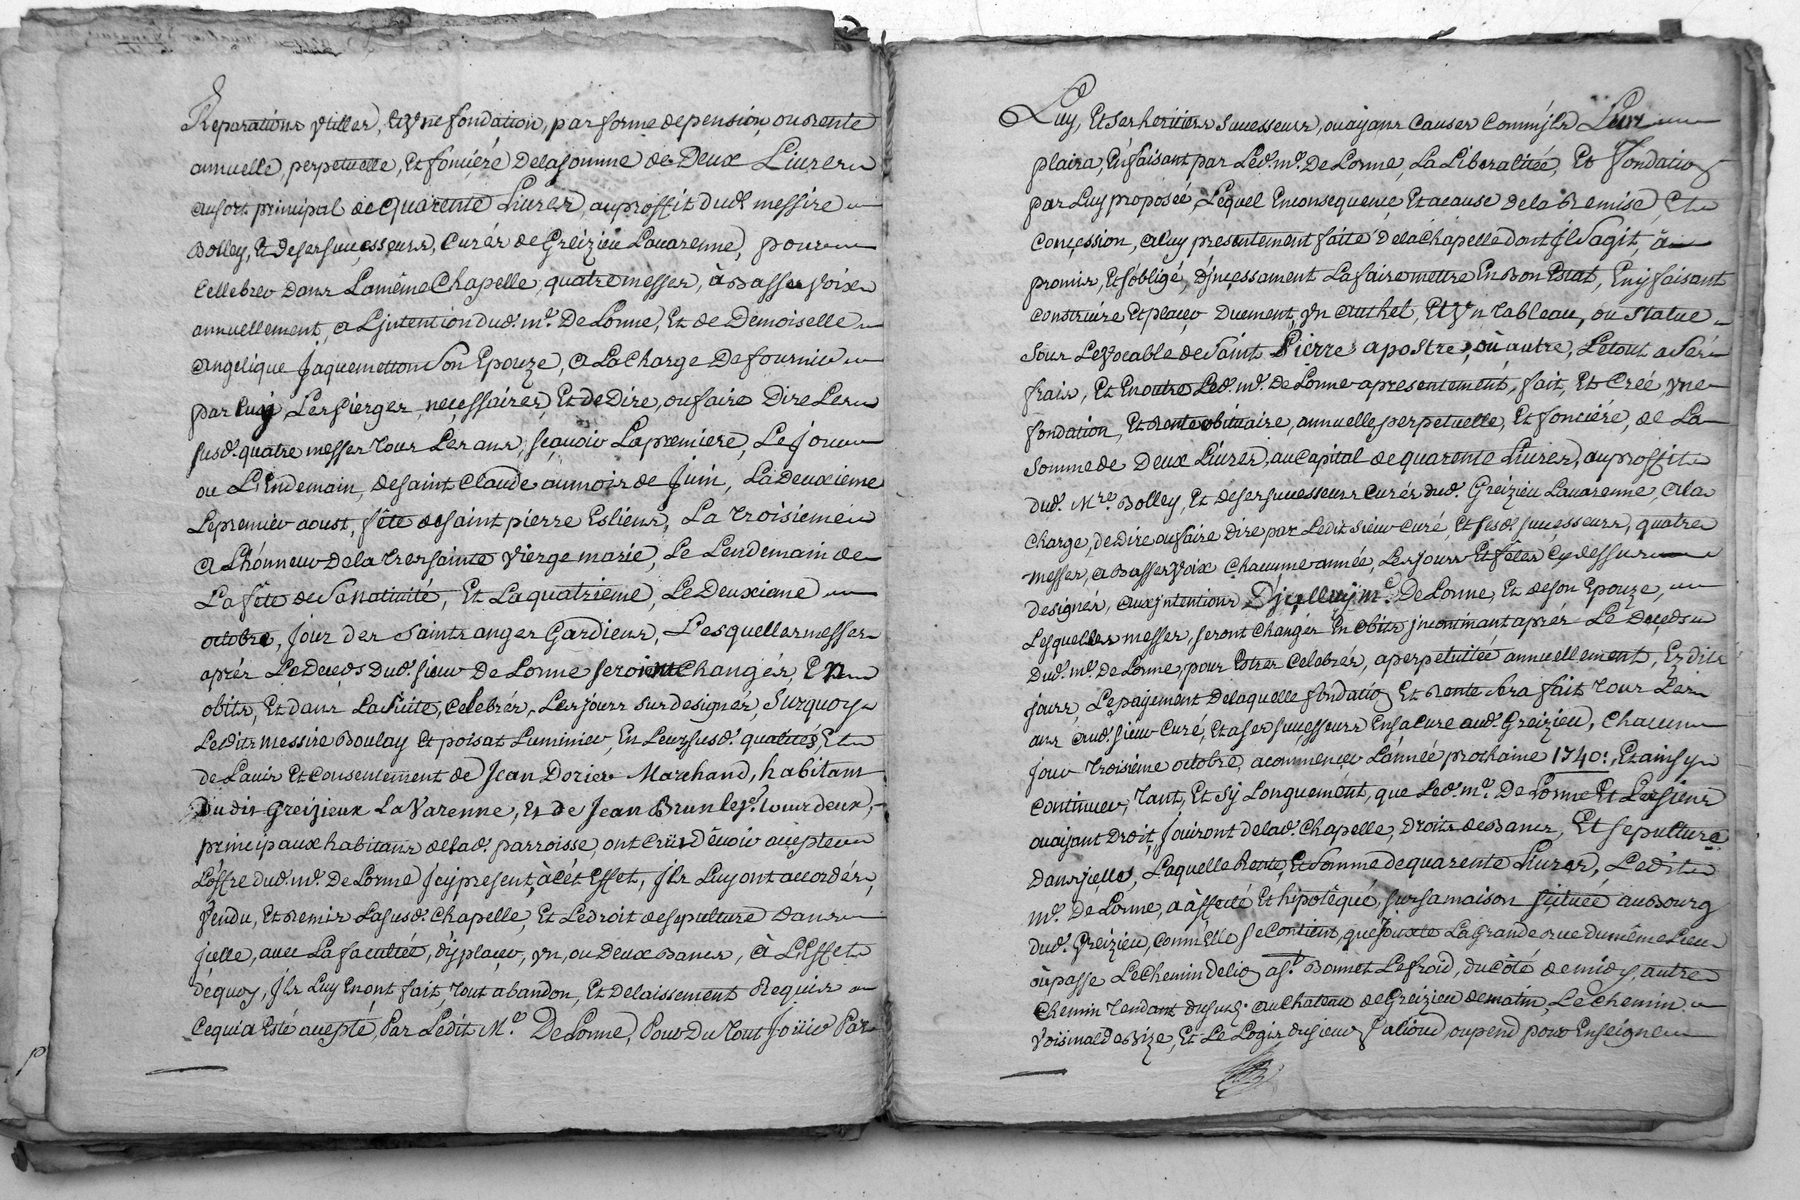 Reparations utilles, et une fondation, par forme de pension, ou Rente
annuelle, perpetuelle, et fonciére de la somme de Deux Livres
au sort principal de quarente Livres, au proffit dud. messire
Bolley, et de ses successeurs, Curés de Greizieu Lauarenne, pour
Cellebrer dans La même Chapelle, quatre messes, à Basse Voix
annuellement, a L'jntention dud. mr. De Lonne, et de Demoiselle
angelique Jaquemetton Son Epouze, a La Charge De fournir
par Luy Les sierges neçessaires, et de Dire, ou faire Dire Les
susd. quatre messes tous Les ans, sçauoir La premiere, Le jour
ou L'Endemain, de saint Claude au mois de Juin, La Deuxieme
Le premier aoust, fête de saint pierre Es liens, La troisieme
a L'hónneur de la tres sainte Vierge marie, Le Lendemain de
La fête de Sa natiuité, Et La quatriéme, Le Deuxiême
octobre, Jour des saints anges Gardiens, Lesquelles messes
aprés Le Deceds Dud. sieur De Lonne seroient Changés, En
obits, Et dans La suite, celebrés, Les jours sus designés, Surquoy
Lesdits messire Boulay Et poisat Luminier, En Leurs susd. qualités, Et
de L'auis Et Consentement de Jean Dorier Marchand, habitant
Dudit Greizieux La Varenne, Et de Jean Brun
principaux habitans de lad. parroisse, ont Crûs déuoir accepter
L'offre dud. mr. De Lonne Jcy present, à cét effet, Jls Luy ont accordés,
Vendu, Et Remis La susd. Chapelle, Et Le droit de sepulture dans
jcelle, auec La facultée, d'y plaçer, un, ou Deux Bancs, à L'Effet
déquoy, Jls Luy En ont fait, tout abandon, Et Delaissement Requis
Ce qui a Esté accepté, Par Ledit Mr. De Lonne, Pour Du tout Joüir Par
Luy, Et ses heritiers successeurs, ou ayans Causes Comm'jls Leur
plaira, En faisant par Led. mr. De Lonne, La Liberalitée, Et Fondation
par Luy proposée, Lequel En consequençe Et a cause de la Remise, Et
conçession, a Luy presentement faite de la Chapelle dont Jl S'agit, à
promis, Et s'obligé, D'jnçessament La faire mettre En Bon Estat, En y faisant
construire Et plaçer Duement, un Authel, Et un tableau, ou statue
sous Le Vocable de Saint Pierre apostre, ou autre, Le tout a Ses
frais, Et En outre Led. mr. De Lonne a presentement, fait, Et Créé, une
fondation, Et Rente obituaire, annuelle perpetuelle, Et fonciére, de La
somme de Deux Liures, au Capital de quarente Liures, au proffit
dud. Mre. Bolley, Et de ses successeurs Curés dud. Greizieu Lauarenne, a La
Charge, de Dire ou faire Dire par Ledit sieur Curé, Et sesd. successeurs, quatre
messes, a Basses Voix Chacunne année, Les jours Et fêtes Cy dessus
designés, aux jntentions D'jcelluy mr. De Lonne, Et de son Epouze,
Lesquelles messes, seront Changés En obits jncontinant aprés Le Deceds
Dud. mr. De Lonne, pour Estres Celebrés, a perpetuitée annuellement, Esdits
jours, Le payement de laquelle fondation Et Rente sera fait tous Les
ans aud. sieur Curé, Et a ses successeurs En sa Cure aud. Greizieu, Chacun
jour troisiéme octobre, a commençer L'année prochaine 1740: Et ainsy
Continuer, tant, Et sy Longuement, que Led. mr. De Lonne Et Les siens
ou ayant Droit, Joüiront de lad. Chapelle, Droits de Bancs, Et sepulture
dans jcelle, Laquelle Rente, Et Somme de quarente Liures, Ledit
mr. De Lonne, a affecté Et hipotéqué, sur sa maison scituée au Bourg
dud. Greizieu, comm'Elle se Contient, que Jouxte La Grande rue du même Lieu
où passe Le Chemin de Lion a St. Bonnet Le froid, du côté de midy, autre
Chemin tendant du susd. au Chateau de Greizieu de matin, Le Chemin
Voisinal de Bize, Et Le Logis du sieur Valioud, ou pend pour Enseigne